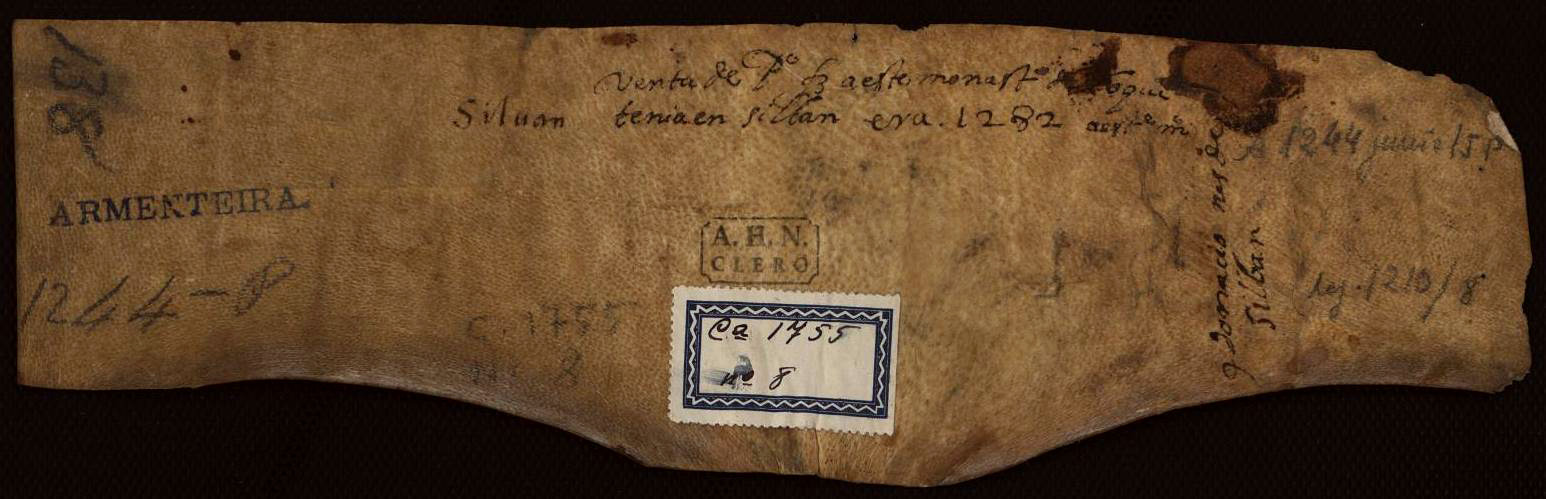 138
venta de Pº fz a este monastº que
Siluan tenia en silban era. 1282
A 1244 junio 15 P
ARMENTEIRA.
A. H. N.
CLERO
1244-8
C. 1755
nº 8
Ca 1755
nº 8
donacio
Silban
leg. 1210/8